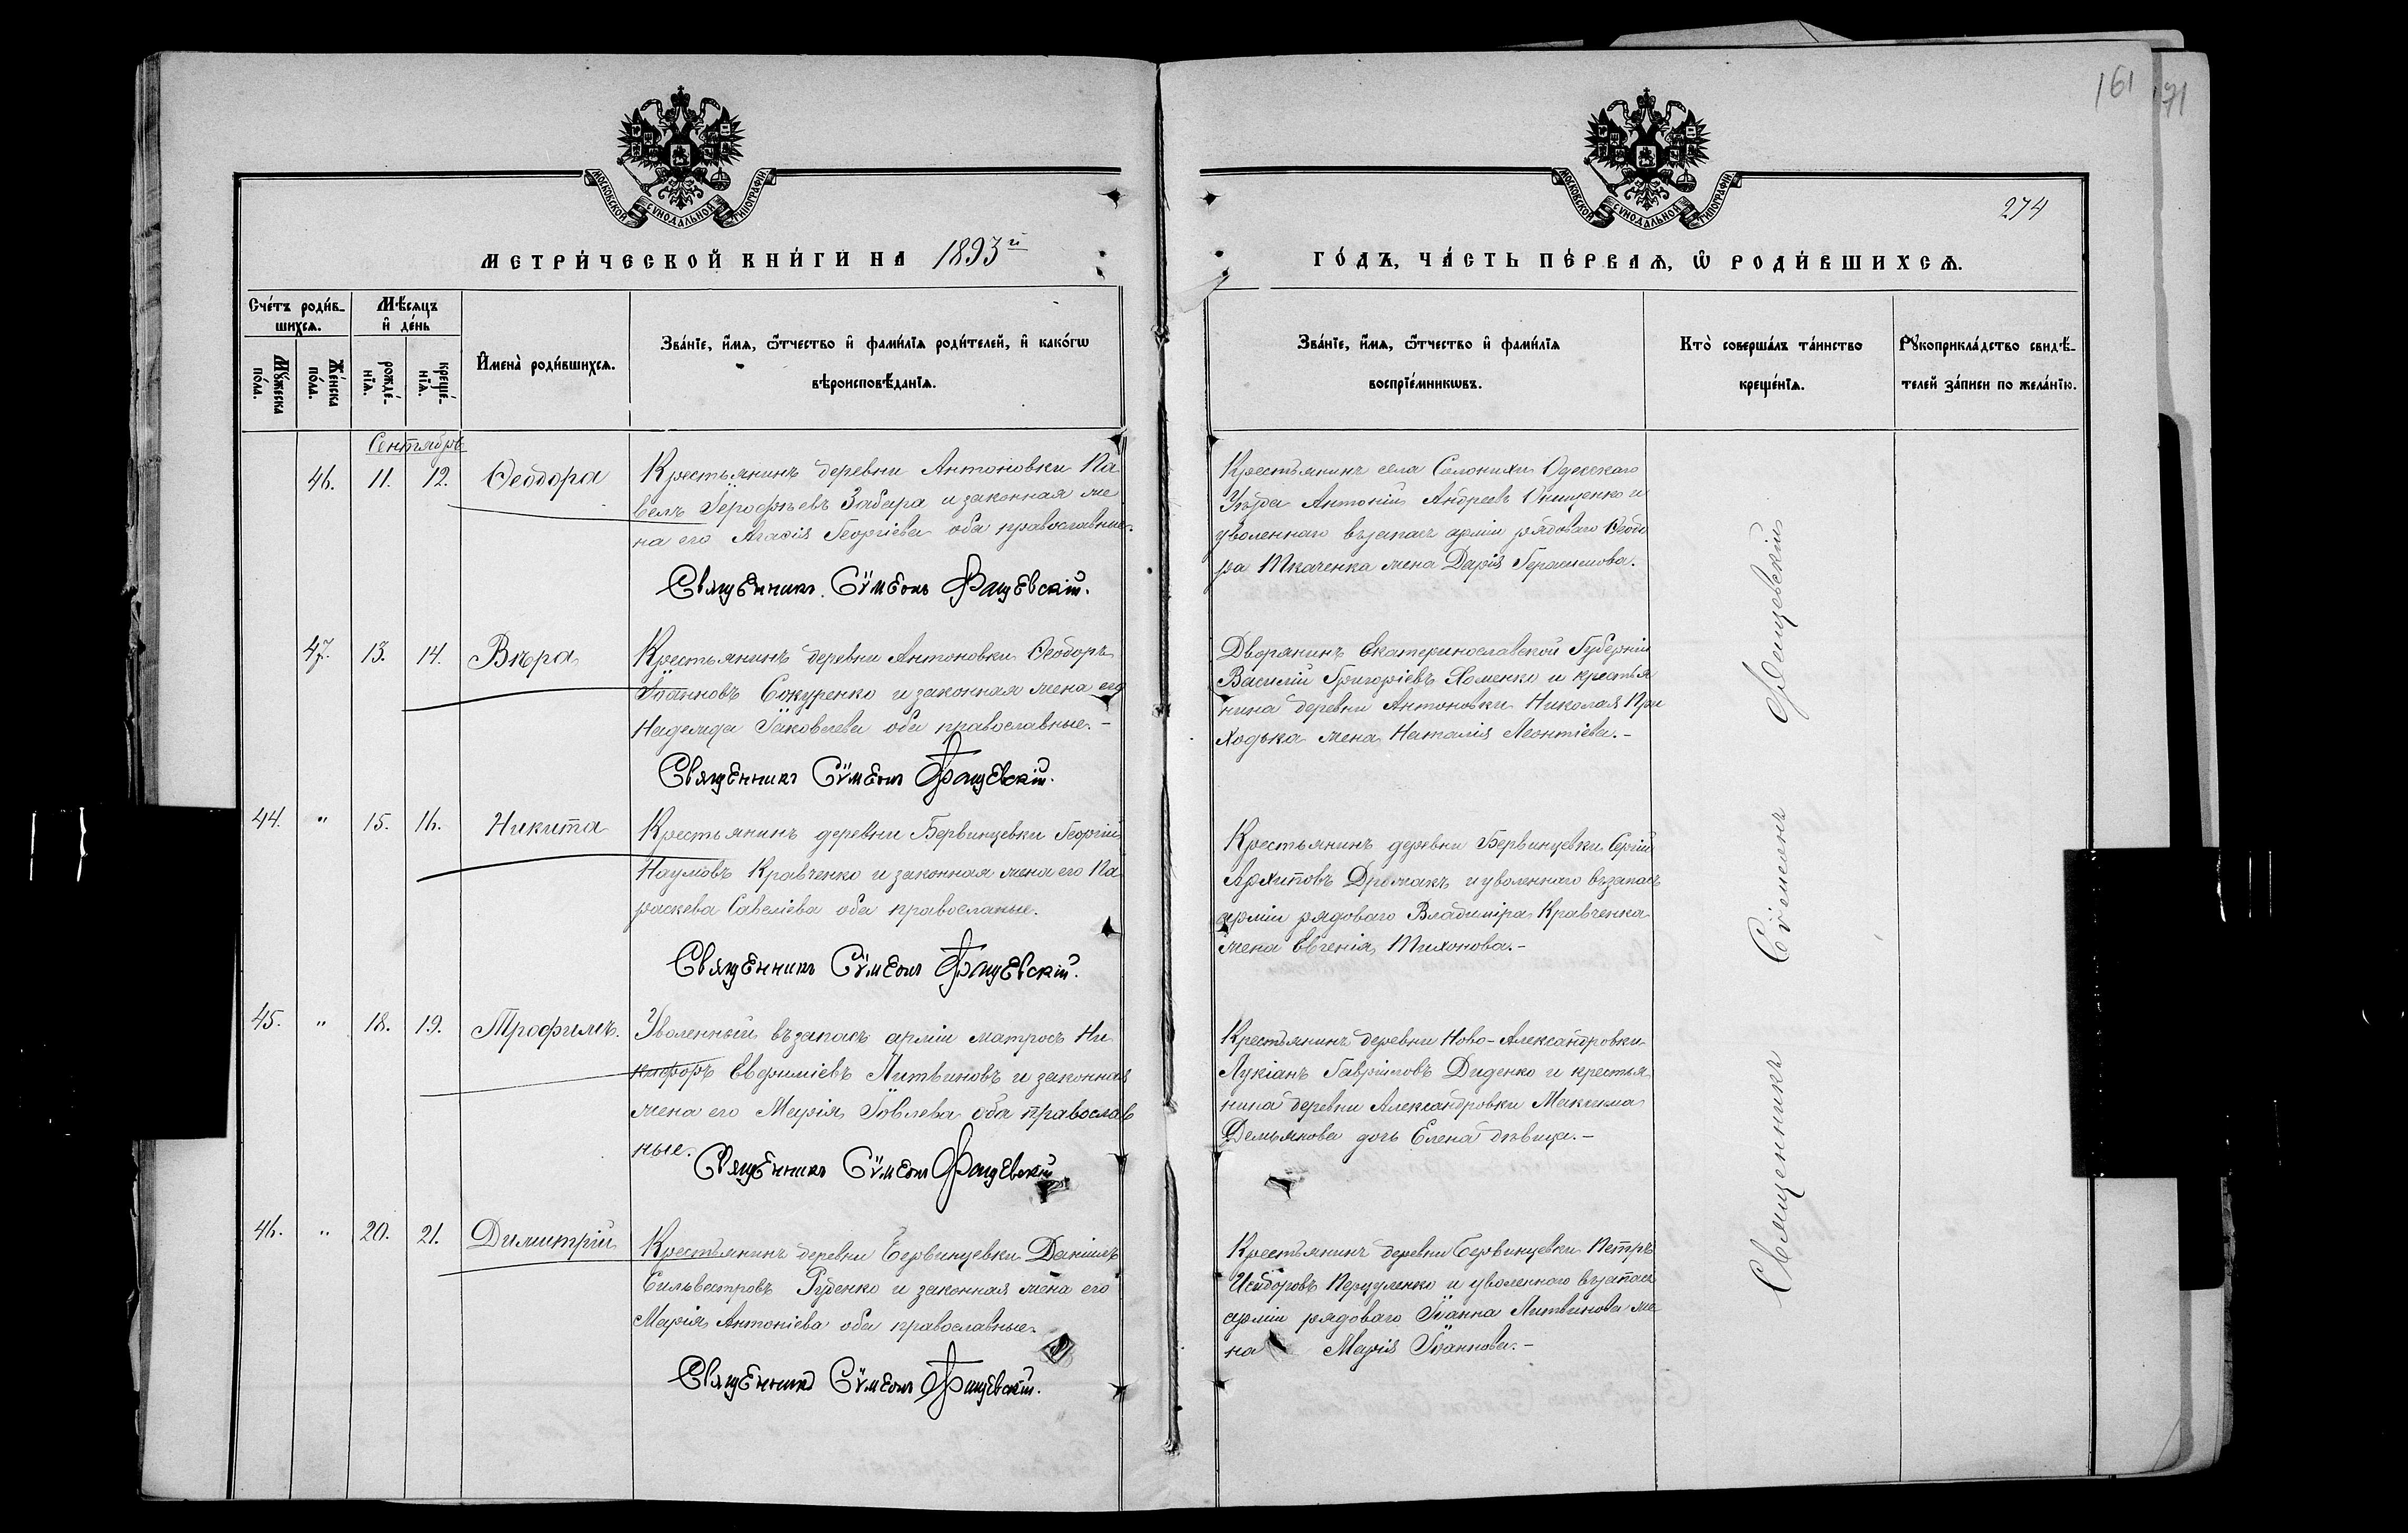 161
71
МОСКОВСКОЙ СѴНОДАЛЬНОЙ ТИПОГРАФІИ
МОСКОВСКОЙ СѴНОДАЛЬНОЙ ТИПОГРАФІИ
274
МЕТРИ́ЧЕСКОЙ КНИ́ГИ НА 1893й
ГО́ДЪ, ЧА́СТЬ ПЕ́РВАѦ, Ѡ҆ РОДИ́ВШИХСѦ.
Сче́тъ роди́в-
шихсѧ.
Мꙋ́жеска
по́ла.
Же́нска
по́ла.
Мѣ́сѧцъ
и҆ де́нь
рожде́-
нїѧ.
креще́-
нїѧ.
И҆мена̀ роди́вшихсѧ.
Зва́нїе, и҆́мѧ, ѻ҆́тчество и҆ фами́лїѧ роди́телей, и҆ како́гѡ
вѣроисповѣ́данїѧ.
Зва́нїе, и҆́мѧ, ѻ҆́тчество и҆ фами́лїѧ
воспрїе́мникѡвъ.
Кто̀ соверша́лъ та́инство
креще́нїѧ.
Рꙋкоприкла́дство свидѣ́-
телей за́писи по жела́нїю.
Сентябрь
46. 11. 12. Ѳеодора
Крестьянинъ деревни Антоновки Па
велъ Іерофѣевъ Забара и законная же
на его Агафія Георгіева оба православные.
Священникъ Сѵмеонъ Фащевскій.
Крестьянинъ села Солонихи Одесскаго
Уѣзда Антоній Андреевъ Онищенко и
уволеннаго въ запасъ арміи рядоваго Ѳеодо
ра Ткаченка жена Дарія Герасимова.
47. 13. 14. Вѣра
Крестьянинъ деревни Антоновки Ѳеодоръ
Іоанновъ Сокуренко и законная жена его
Надежда Іаковлева оба православные.-
Священникъ Сѵмеонъ Фащевскій.
Дворянинъ Екатеринославской Губерніи
Василій Григоріевъ Хоменко и крестья
нина деревни Антоновки Николая При
ходька жена Наталія Леонтіева.-
44. " 15. 16. Никита
Крестьянинъ деревни Бервинцевки Георгій
Наумовъ Кравченко и законная жена его Па
раскева Савеліева оба православные.
Священникъ Сѵмеонъ Фащевскій.
Крестьянинъ деревни Бервинцевки Сергій
Архиповъ и уволеннаго въ запасъ
арміи рядоваго Владиміра Кравченка
жена Евгенія Тихонова.-
45. " 18. 19. Трофимъ.
Уволенный въ запасъ арміи матросъ Ни
кифоръ Евфиміевъ Литвиновъ и законная
жена его Марія Іовлева оба православ
ные.
Священникъ Сѵмеонъ Фащевскій
Крестьянинъ деревни Ново-Александровки
Лукіанъ Гавріиловъ Диденко и крестья
нина деревни Александровки Максима
Демьянова дочь Елена дѣвица.-
46. " 20. 21. Димитрій
Крестьянинъ деревни Бервинцевки Даніилъ
Сильвестровъ Руденко и законная жена его
Марія Антоніева оба православные.
Священникъ Сѵмеонъ Фащевскій.
Крестьянинъ деревни Бервинцевки Петръ
Исидоровъ и уволеннаго въ запасъ
арміи рядоваго Іоанна Литвинова же
на Марія Іоаннова.-
Священникъ Сѵмеонъ Фащевскій